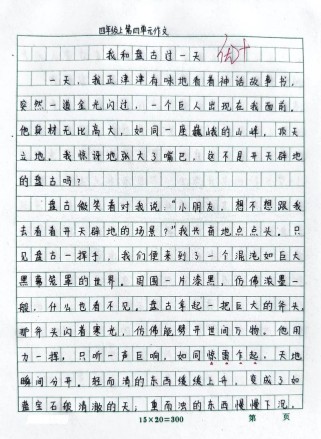 四年级上第四单元作文
我和盘古过一天
一天，我正津津有味地看着神话故事书，
突然一道金光闪过，一个巨人出现在我面前。
他身材无比高大，如同一座巍峨的山峰，顶天
立地。我惊讶地张大了嘴巴，这不是开天辟地
的盘古吗？
盘古微笑着对我说："小朋友，想不想跟我
去看看开天辟地的场景？"我兴奋地点点头。只
见盘古一挥手，我们便来到了一个混沌如巨大
黑幕笼罩的世界。周围一片漆黑，仿佛浓墨一
般，什么也看不见。盘古拿起一把巨大的斧头，
那斧头闪着寒光，仿佛能劈开世间万物。他用
力一挥，只听一声巨响，如同惊雷乍起，天地
瞬间分开。轻而清的东西缓缓上升，变成了如
蓝宝石般清澈的天；重而浊的东西慢慢下沉，
15×20=300
第 页